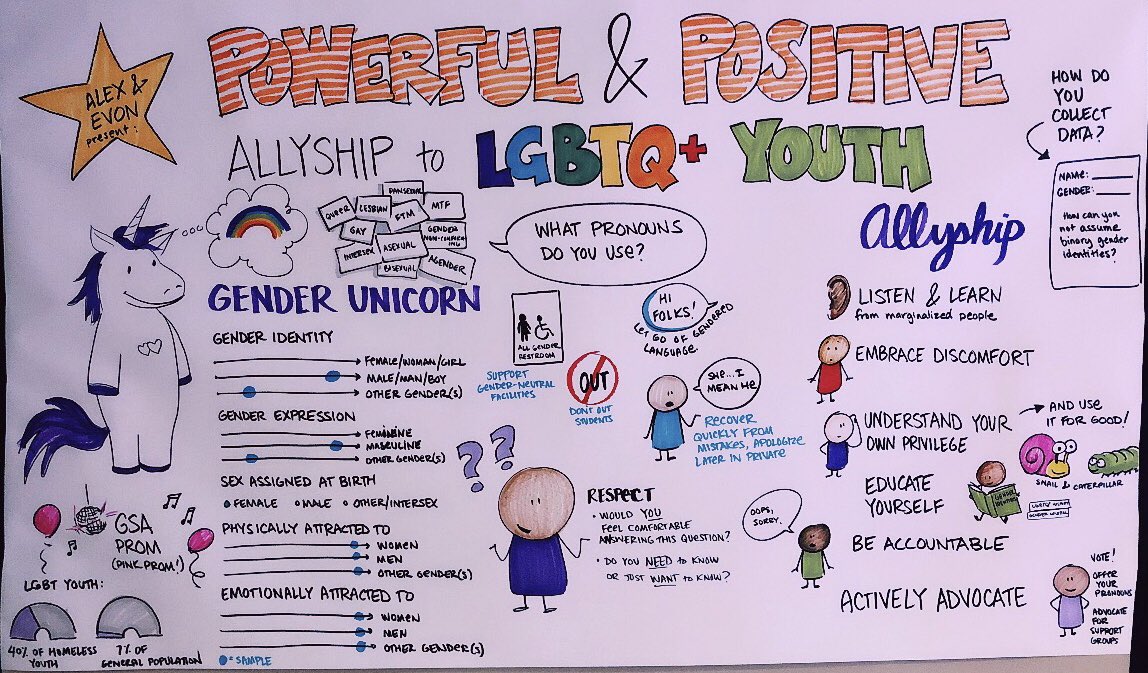 ALEX &
EVON
present:
POWERFUL & POSITIVE
ALLYSHIP to LGBTQ+ YOUTH
HOW DO
YOU
COLLECT
DATA?
NAME:
GENDER:
How can you
not assume
binary gender
identities?
QUEER
LESBIAN
PANSEXUAL
FTM
MTF
GAY
GENDER
NON-CONFORM-
ING
INTERSEX
ASEXUAL
BISEXUAL
AGENDER
WHAT PRONOUNS
DO YOU USE?
GENDER UNICORN
GENDER IDENTITY
FEMALE/WOMAN/GIRL
MALE/MAN/BOY
OTHER GENDER(S)
GENDER EXPRESSION
FEMININE
MASCULINE
OTHER GENDER(S)
SEX ASSIGNED AT BIRTH
FEMALE MALE OTHER/INTERSEX
PHYSICALLY ATTRACTED TO
WOMEN
MEN
OTHER GENDER(S)
EMOTIONALLY ATTRACTED TO
WOMEN
MEN
OTHER GENDER(S)
= SAMPLE
GSA
PROM
(PINK PROM!)
LGBT YOUTH:
40% OF HOMELESS
YOUTH
7% OF
GENERAL POPULATION
ALL GENDER
RESTROOM
SUPPORT
GENDER-NEUTRAL
FACILITIES
HI
FOLKS!
LET GO OF GENDERED
LANGUAGE.
OUT
DON'T OUT
STUDENTS
SHE... I
MEAN HE
RECOVER
QUICKLY FROM
MISTAKES, APOLOGIZE
LATER IN PRIVATE
??
RESPECT
• WOULD YOU
FEEL COMFORTABLE
ANSWERING THIS QUESTION?
• DO YOU NEED TO KNOW
OR JUST WANT TO KNOW?
Allyship
LISTEN & LEARN
from marginalized people
EMBRACE DISCOMFORT
UNDERSTAND YOUR
OWN PRIVILEGE
AND USE
IT FOR GOOD!
EDUCATE
YOURSELF
SNAIL & CATERPILLAR
OOPS,
SORRY.
BE ACCOUNTABLE
ACTIVELY ADVOCATE
VOTE!
OFFER
YOUR
PRONOUNS
ADVOCATE
FOR
SUPPORT
GROUPS